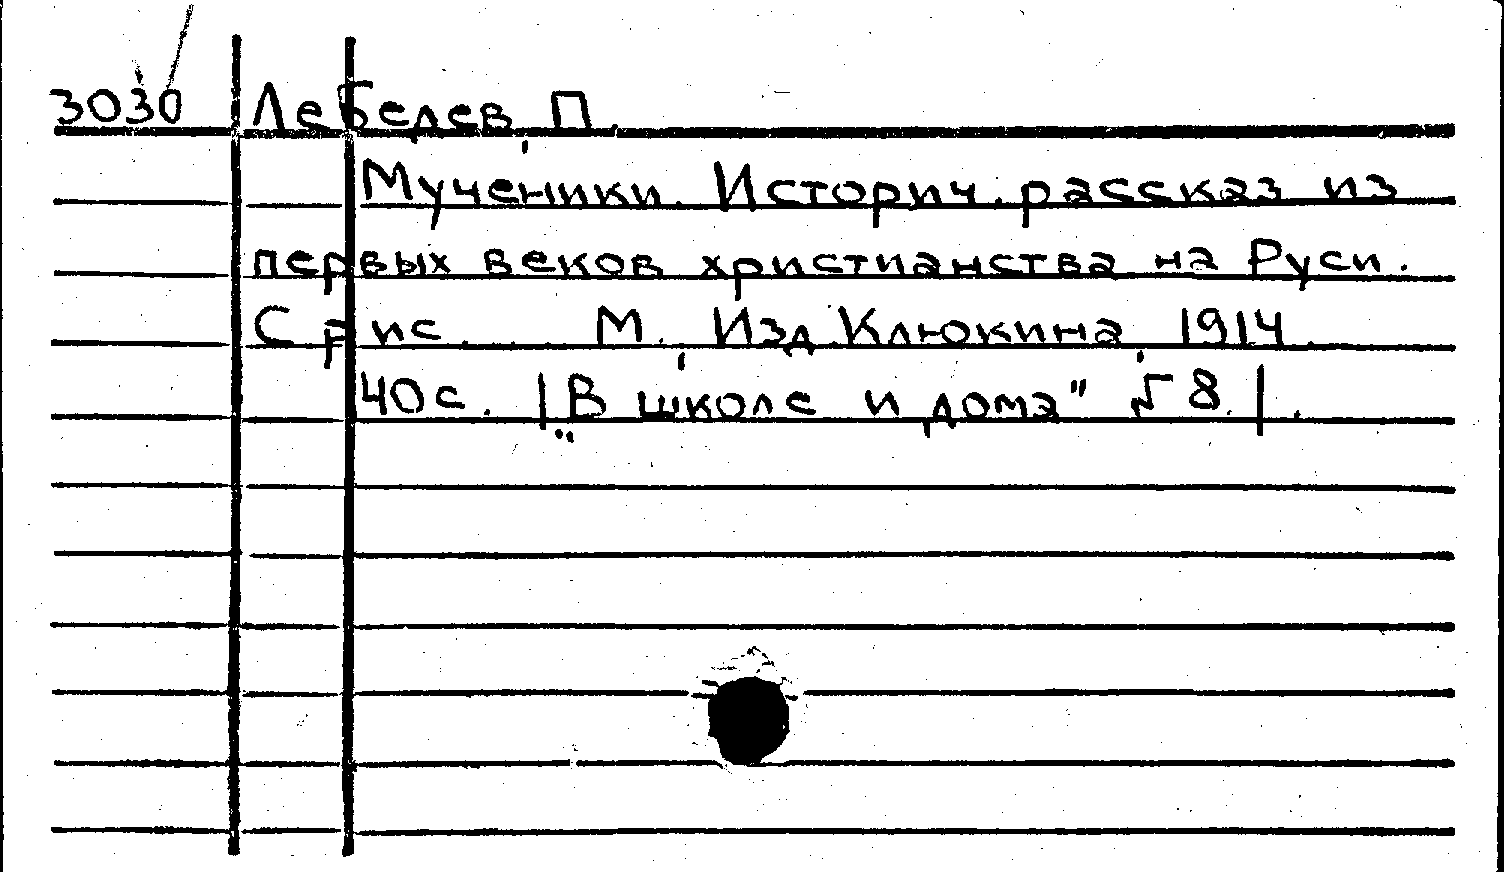 3030 Лебедев, П.
Мученики. Историч. рассказ из
первых веков христианства на Руси.
С рис. М., Изд. Клюкина, 1914.
40 с. |„В школе и дома" № 8.|.